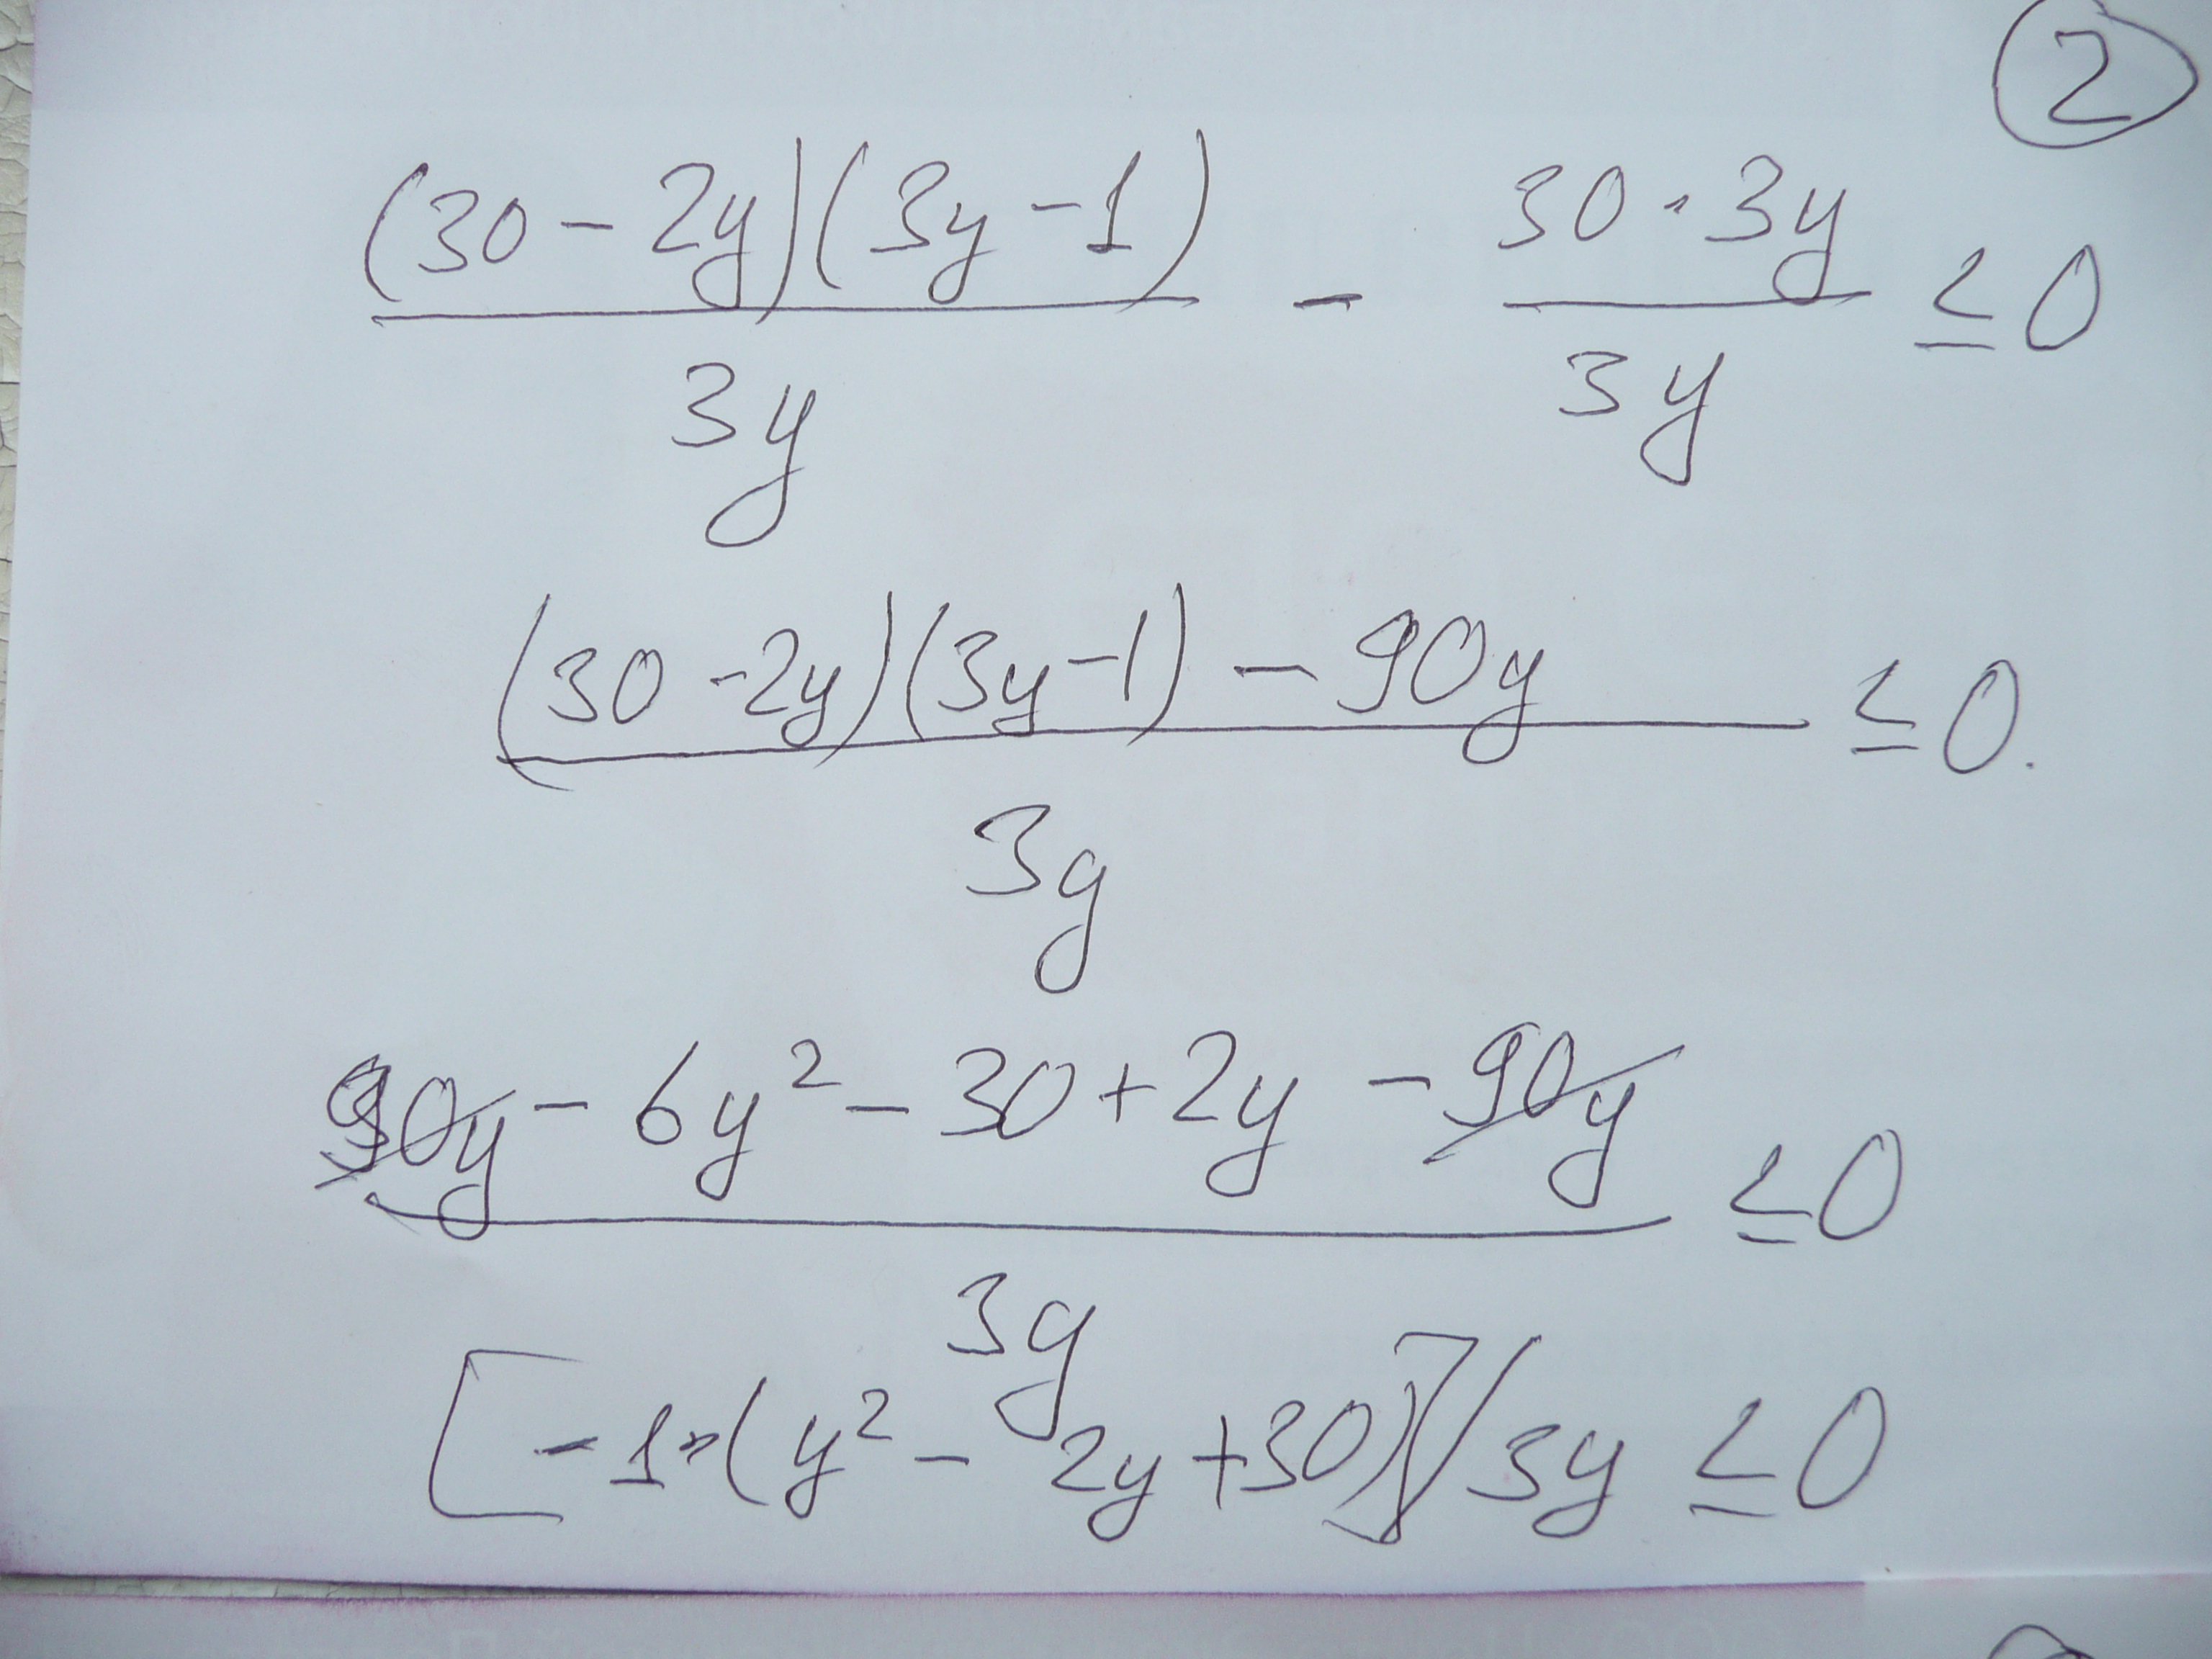 2
(30 - 2y)(3y - 1) / 3y - 30 · 3y / 3y ≤ 0
(30 - 2y)(3y - 1) - 90y / 3y ≤ 0.
90y - 6y² - 30 + 2y - 90y / 3y ≤ 0
[-1·(y² - 2y + 30)] / 3y ≤ 0